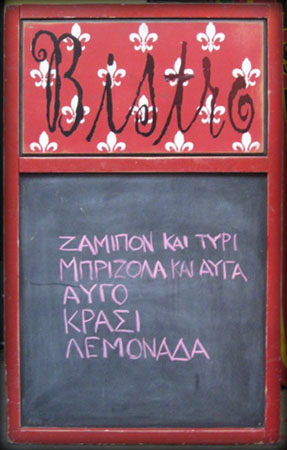 Bistro
ΖΑΜΠΟΝ ΚΑΙ ΤΥΡΙ
ΜΠΡΙΖΟΛΑ ΚΑΙ ΑΥΓΑ
ΑΥΓΟ
ΚΡΑΣΙ
ΛΕΜΟΝΑΔΑ